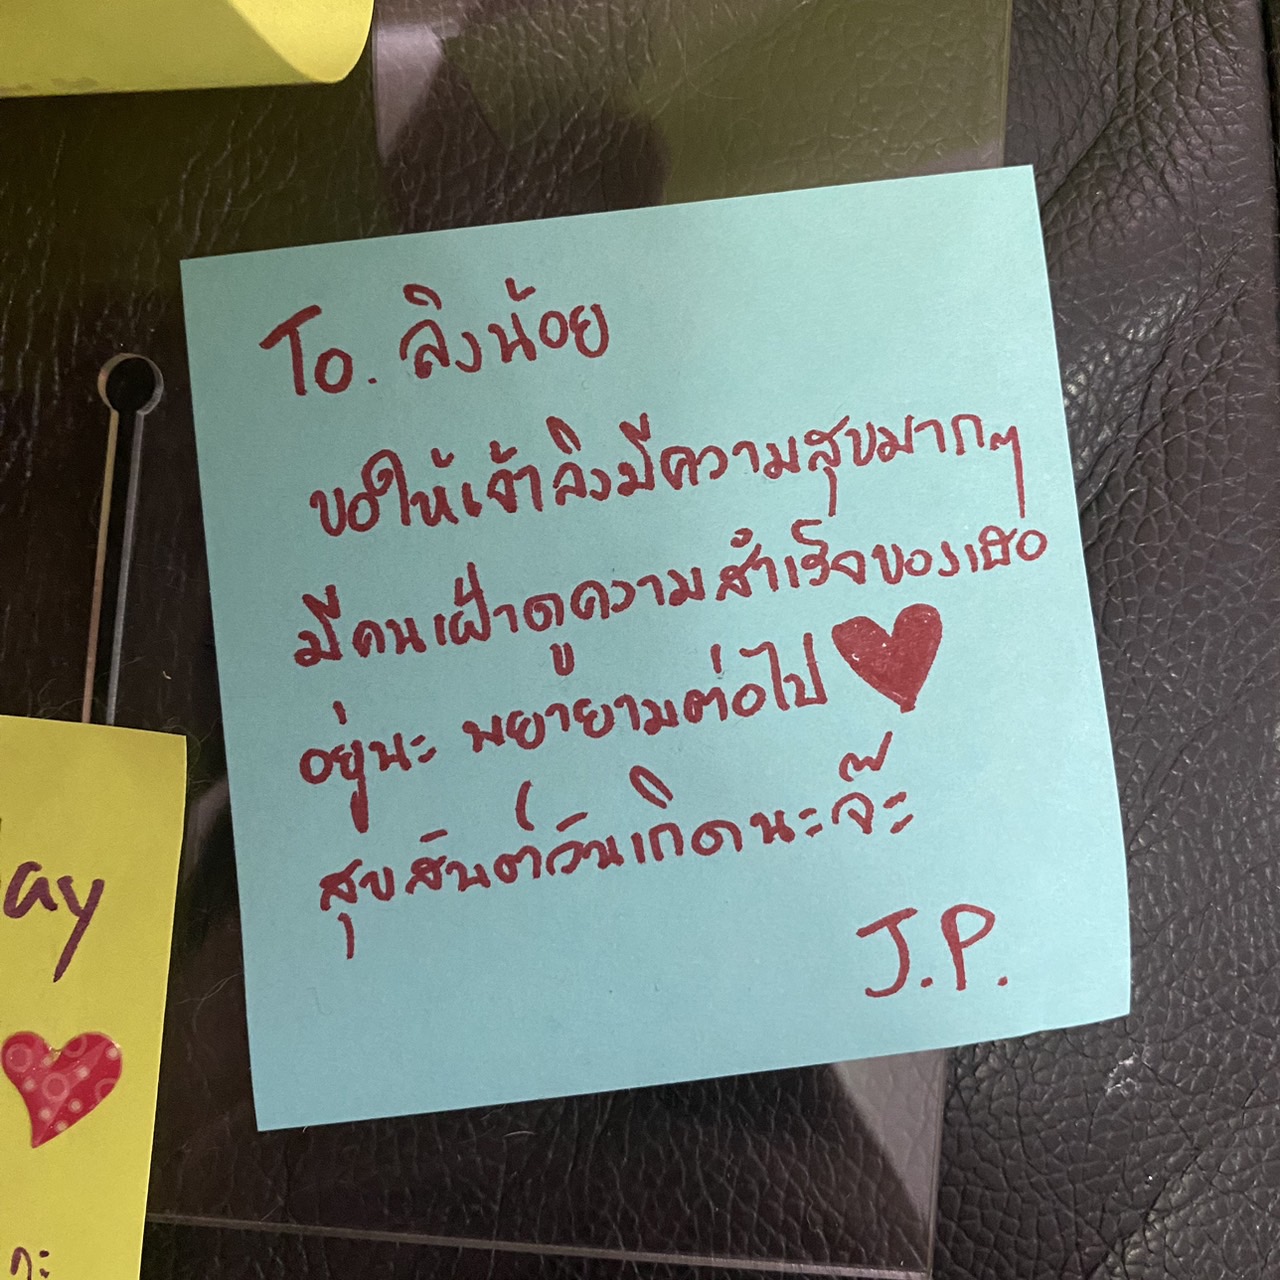 To. ลิงน้อย
ขอให้เจ้าลิงมีความสุขมากๆ
มีคนเฝ้าดูความสำเร็จของเธอ
อยู่นะ พยายามต่อไป ♥
สุขสันต์วันเกิดนะจ๊ะ
J.P.
ay